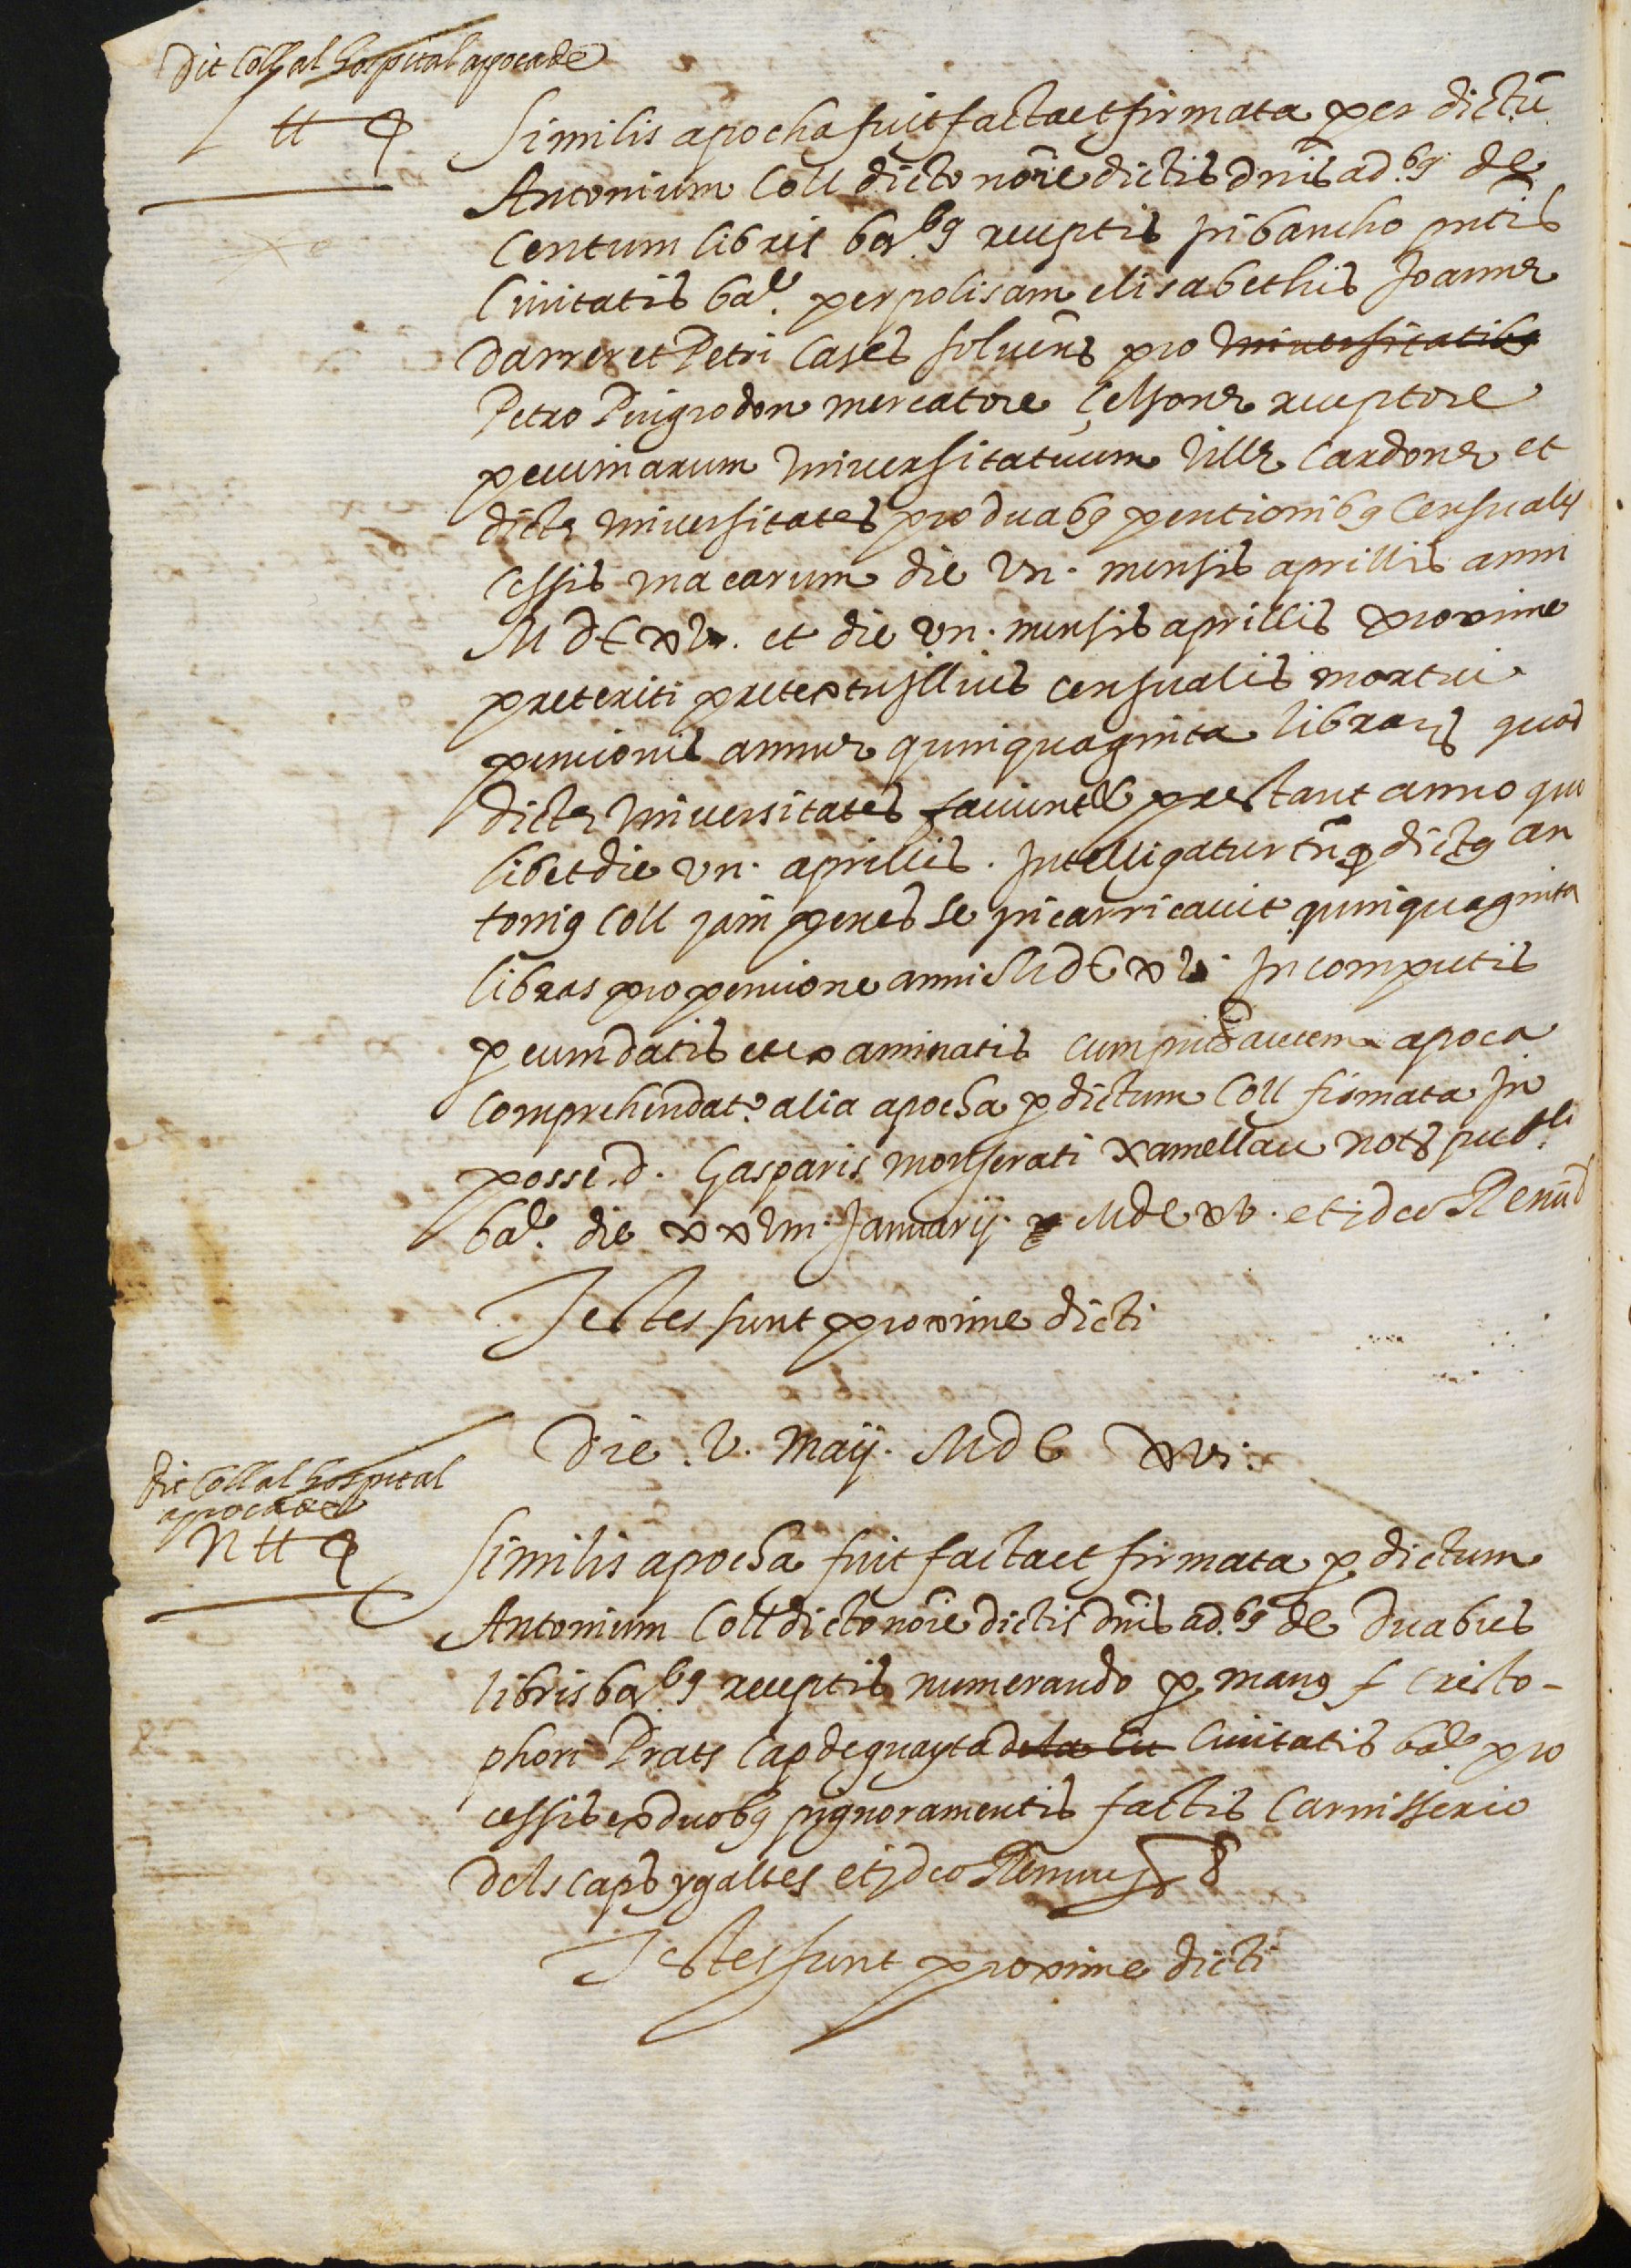 Dit Coll al hospital apoca de
L tt
Similis apocha fuit facta et firmata per dictũ
Antonium Coll dicto nõie dictis dnis ad.bꝯ de
Centum libris bar.bꝯ receptis in bancho pntis
Civitatis bar. per polisam elisabethis Joanne
Darrer et Petri Cases solvens pro universitatibꝯ
Petro Puigrodon mercatore Celsone receptore
pecuniarum universitatuum Ville Cardone et
dicte universitates pro duabꝯ pentionibꝯ Censualꝭ
cessis una earum die vii. mensis aprillis anni
M dC xv. et die vii. mensis aprillis proxime
preteriti pretextu illius censualis mortui
pencionis annue quinquaginta librarꝝ quod
dicte universitates faciunt & prestant anno quo
libet die vii. aprillis. Intelligatur tñ ꝙ dictꝯ an
toniꝯ Coll jam penes se incarricavit quinquaginta
libras pro pencione anni M dC xv. In computis
ꝑ eum datis et examinatis cum pnti autem apoca
Comprehendatᷣ alia apocha ꝑ dictum Coll firmata In
posse d. Gasparis monserati Xamellau notꝭ publi
bar. die xxviii. Januarij. M dC xv. et ideo Renũd
Testes sunt proxime dicti
Die. v. maij. M dC xvi.
Dit Coll al hospital
apoca de
II tt
Similis apocha fuit facta et firmata ꝑ dictum
Antonium Coll dicto nõie dictis dnis ad.bꝯ de Duabus
libris bar.bꝯ receptis numerando ꝑ manꝯ f Cristo-
phori Prats Cap de guayta de la Ciu Civitatis bar. pro
cessis ex duobꝯ pignoramentis factis Carnisserio
dels caps y galtes et ideo Renun
Testes sunt proxime dicti